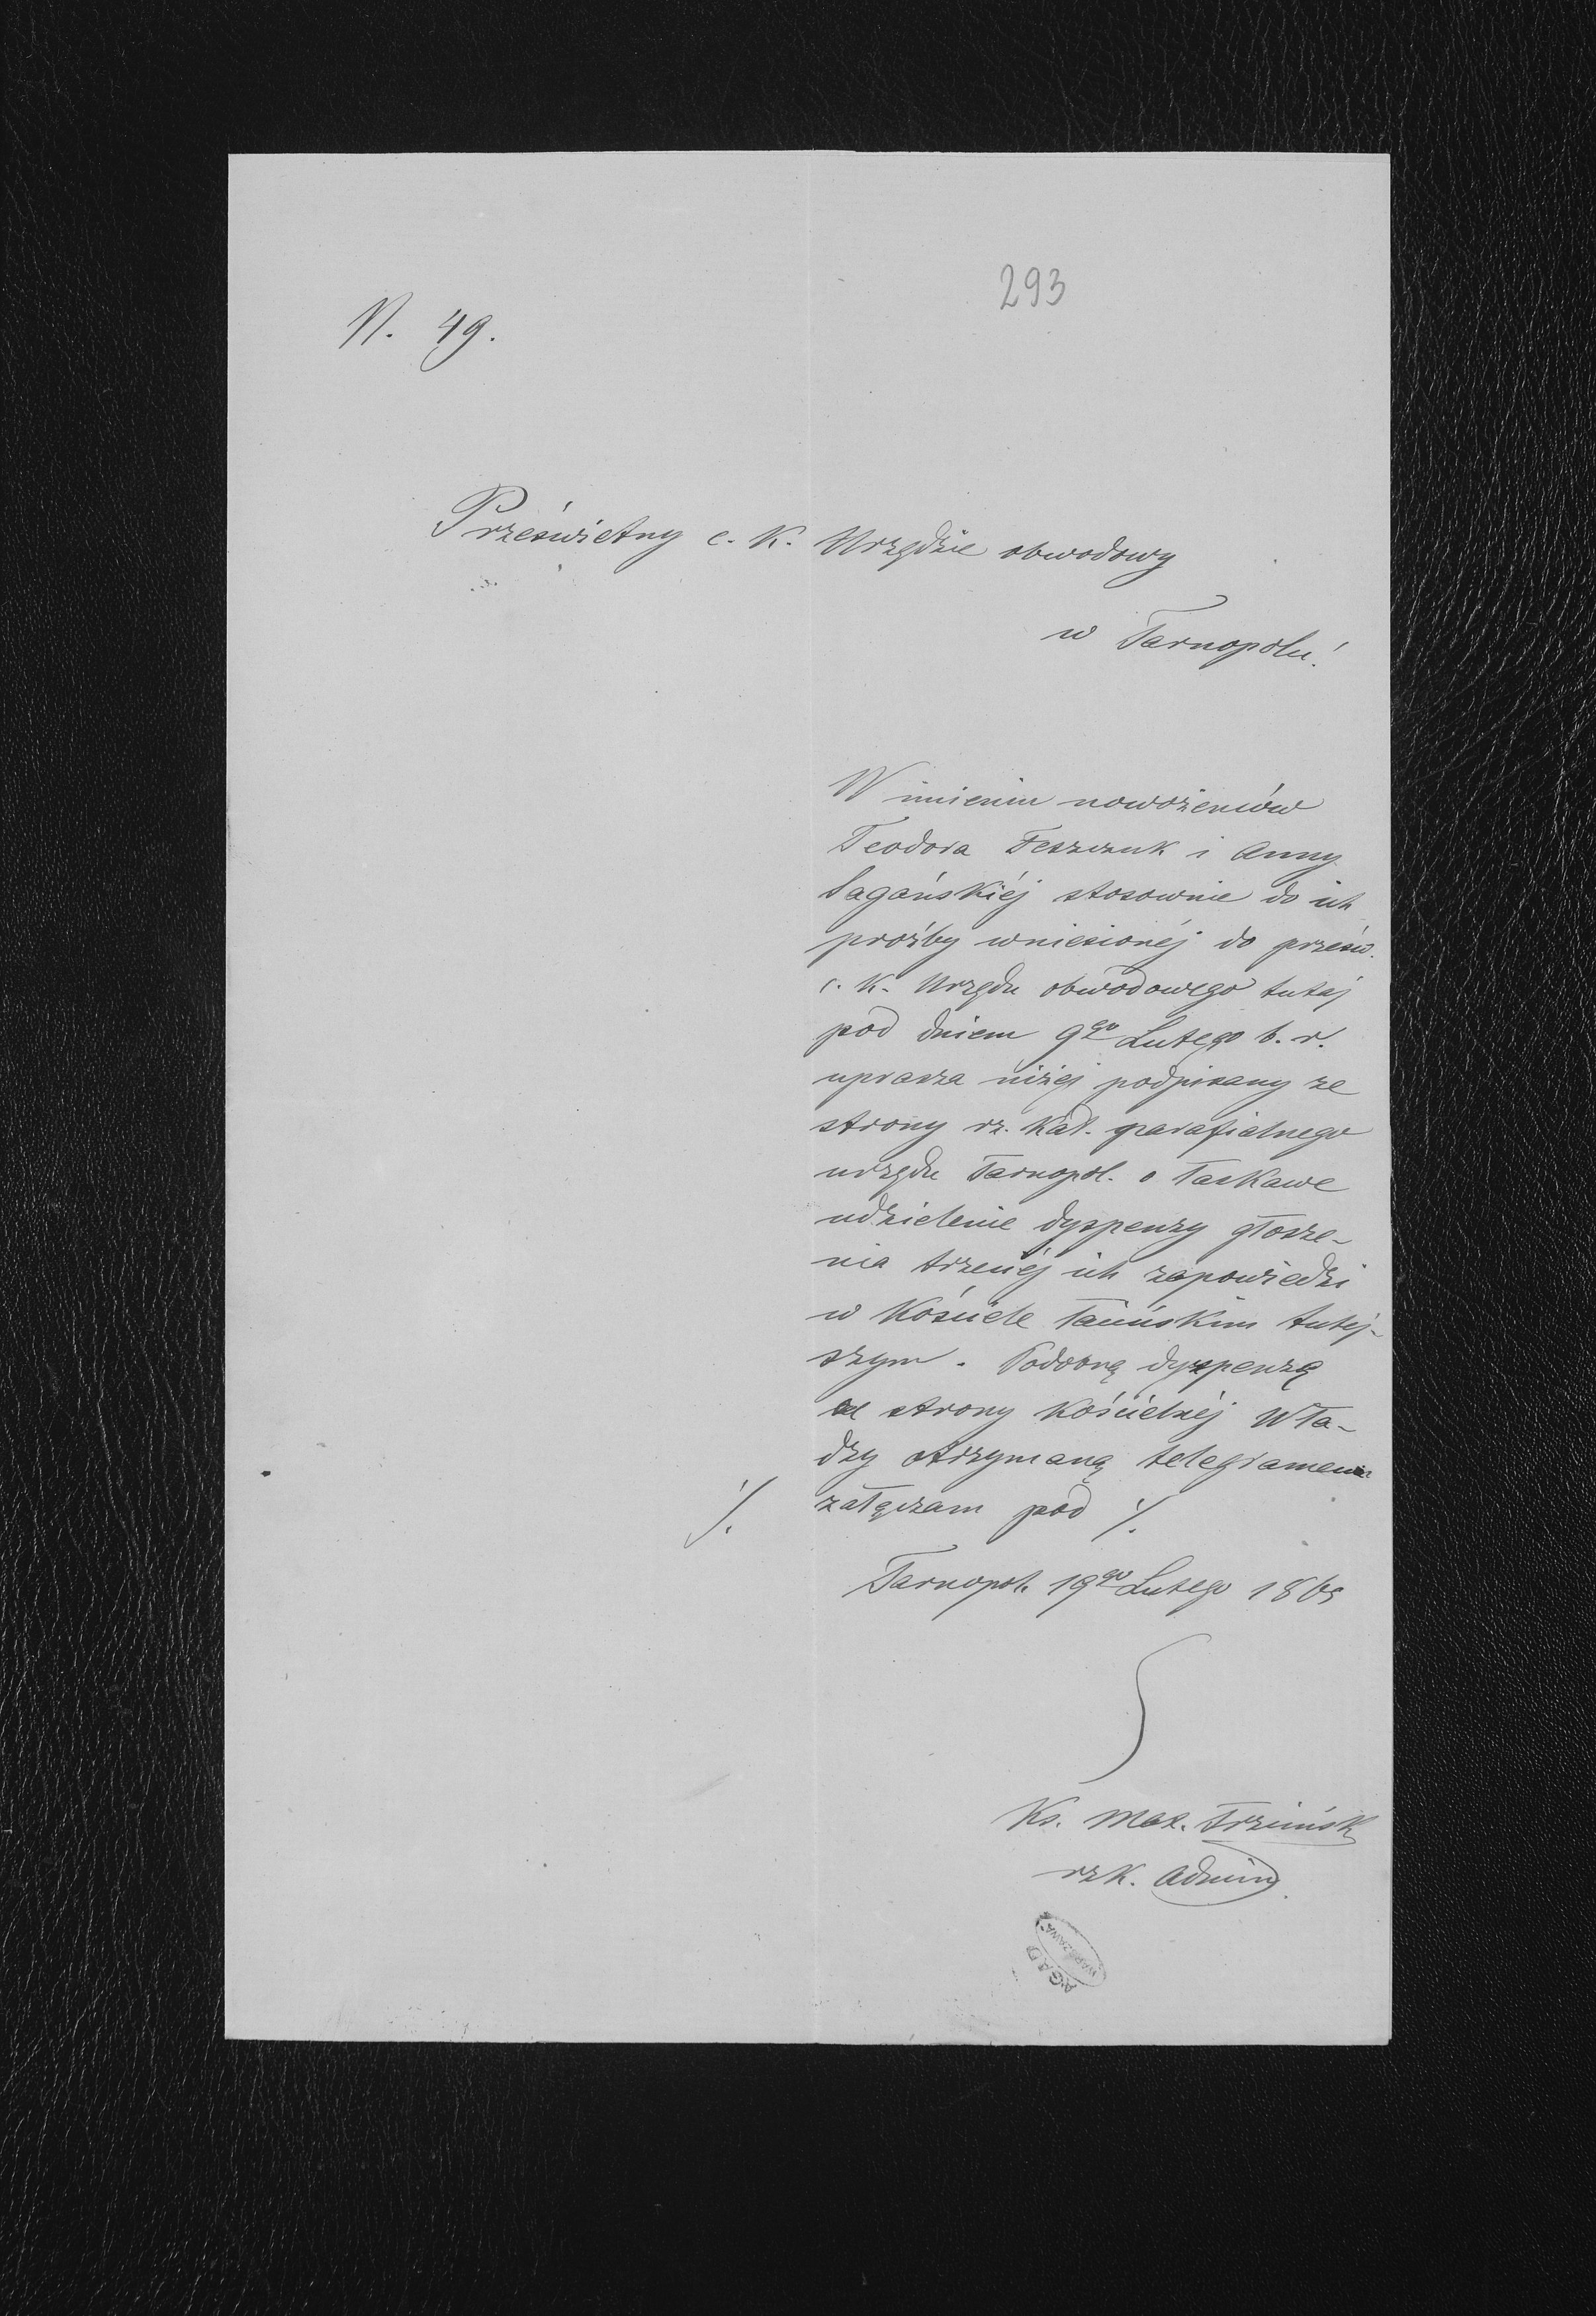 293
N. 49.
Prześwietny c. K. Urzędzie obwodowy
w Tarnopolu!
W imieniu nowożeńców
Teodora Feszczuk i Anny
Sagańskiéj stosownie do ich
prośby wniesionéj do prześw.
c. K. Urzędu obwodowego tutaj
pod dniem 9go Lutego b. r.
uprasza niżéj podpisany ze
strony rz. kat. parafialnego
urzędu Tarnopol. o łaskawe
udzielenie dyspenzy głosze-
nia trzeciéj ich zapowiedzi
w Kościele łacińskim tutej-
szym. Podobną dyspenzę
od strony Kościelnéj Wła-
dzy otrzymaną telegramem
·/. załączam pod ·/.
Tarnopol. 19go Lutego 1865
Ks. Max.
rzk. Admin.
AGAD
WARSZAWA